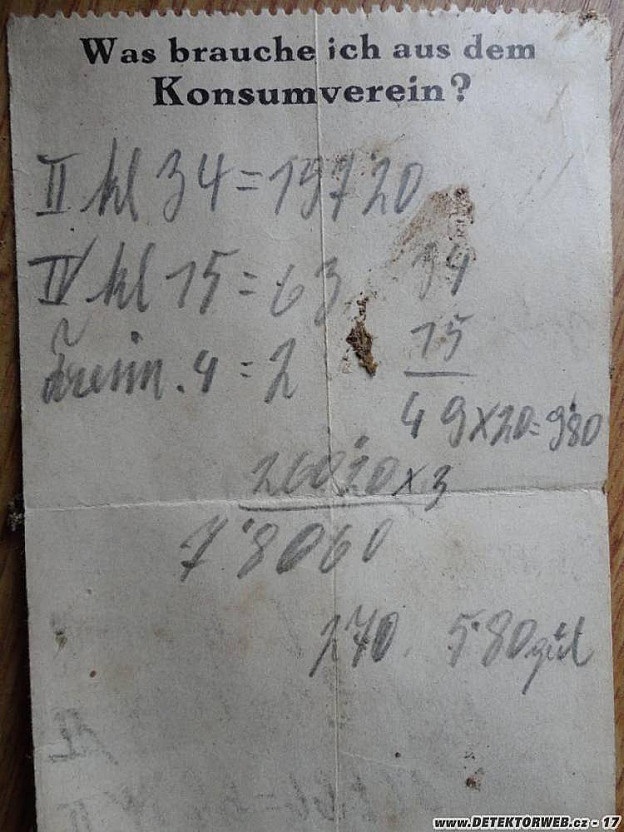 Was brauche ich aus dem
Konsumverein?
II kl 34 = 19720
IV kl 15 = 63
34
15
4 = 2
49x20=9'80
260'20x3
7'8060
170. 5'80
www.DETEKTORWEB.cz - 17